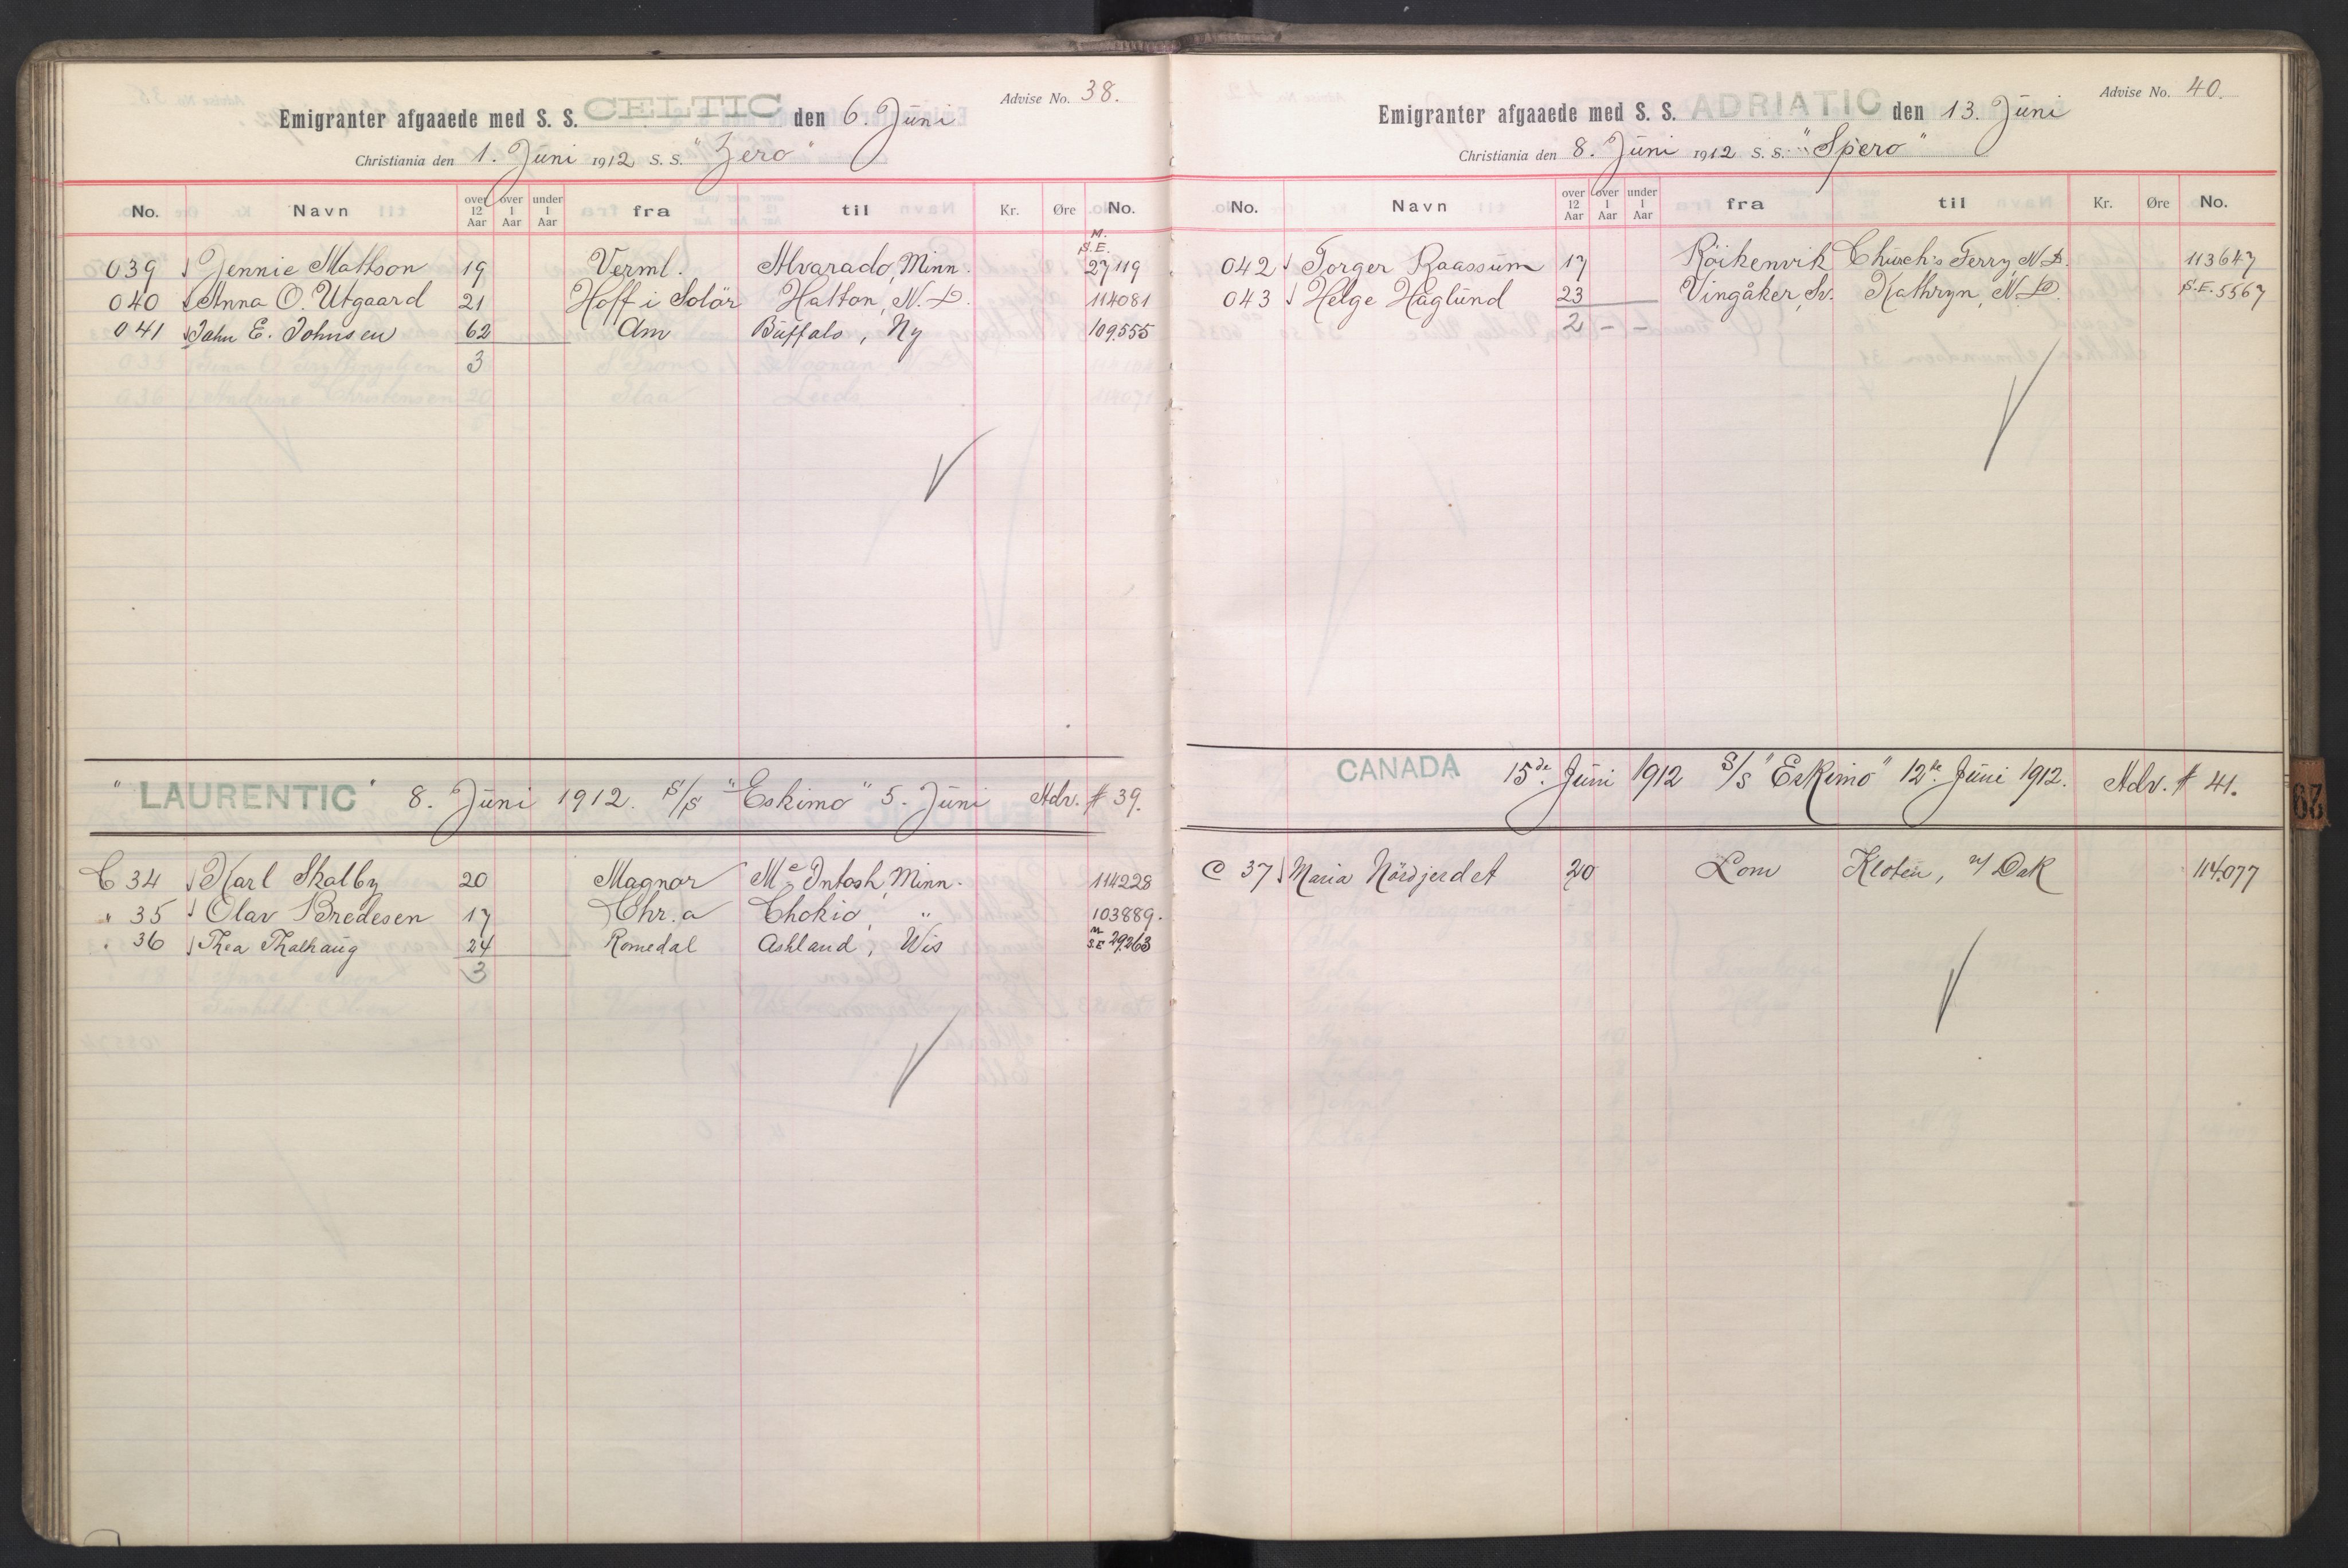 Advise No. 38.
Emigranter afgaaede med S. S. CELTIC den 6. Juni
Christiania den 1. Juni 1912 S. S. "Zero"
No. Navn over 12 Aar over 1 Aar under 1 Aar fra til Kr. Øre No.
039 Jennie Mattson 19 Verml. Alvarado, Minn. M. S.E. 27119
040 Anna O. Utgaard 21 Hoff i Solör Hatton, N. D. 114081
041 John E. Johnsen 62 Am Buffalo, Ny 109555
3
"LAURENTIC" 8. Juni 1912. S/S "Eskimo" 5. Juni Adv. # 39.
C 34 Karl Skalby 20 Magnor Mc Intosh, Minn. 114228
" 35 Olav Bredesen 17 Chr.a Chokio, " 103889.
" 36 Thea Thalhaug 24 Romedal Ashland, Wis M S.E 29263
3
Advise No. 40.
Emigranter afgaaede med S. S. ADRIATIC den 13. Juni
Christiania den 8. Juni 1912 S. S. "Spero"
No. Navn over 12 Aar over 1 Aar under 1 Aar fra til Kr. Øre No.
042 Torger Raassum 17 Röikenvik Church's Ferry, N. D. 113647
043 Helge Haglund 23 Vingåker, Sv. Kathryn, N. D. S.E. 5567
2 – –
CANADA 15de. Juni 1912 S/S "Eskimo" 12te. Juni 1912. Adv. # 41.
C 37 Maria Nördjerdet 20 Lom Kloten, N/ Dak 114.077